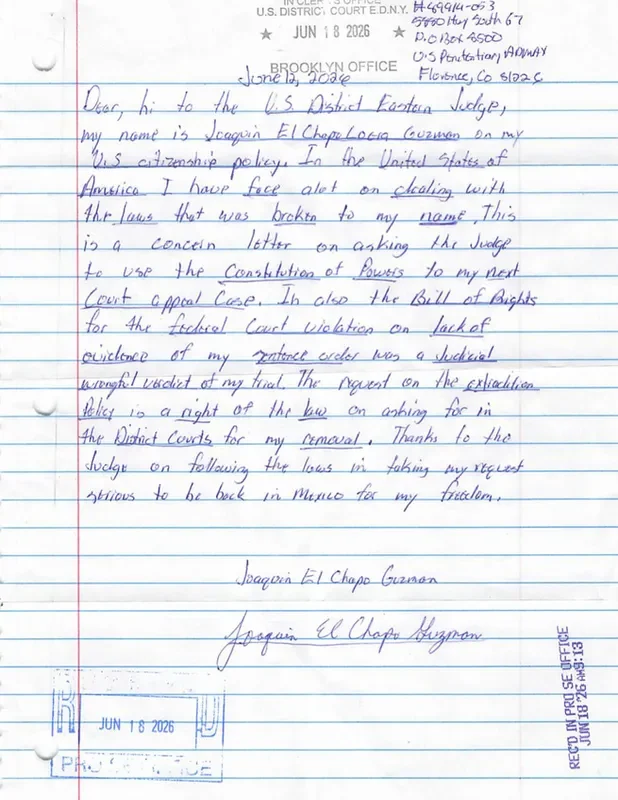 IN CLERK'S OFFICE
U.S. DISTRICT COURT E.D.N.Y.
★ JUN 18 2026 ★
BROOKLYN OFFICE
#89914-053
5880 Hwy South 67
P.O Box 8500
U.S Penitentiary, ADMAX
Florence, Co 81226
June 12, 2026
Dear, hi to the U.S. District Eastern Judge,
my name is Joaquin El Chapo Loera Guzman on my
U.S citizenship policy. In the United States of
America I have face alot on dealing with
the laws that was broken to my name. This
is a concern letter on asking the Judge
to use the Constitution of Powers to my next
Court appeal Case. In also the Bill of Rights
for the federal Court violation on lack of
evidence of my sentence order was a Judicial
wrongful verdict of my trial. The request on the extradition
Policy is a right of the law on asking for in
the District Courts for my removal. Thanks to the
Judge on following the laws in taking my request
serious to be back in Mexico for my freedom.
Joaquin El Chapo Guzman
Joaquin El Chapo Guzman
JUN 18 2026
PRO SE OFFICE
REC'D IN PRO SE OFFICE
JUN 18 '26 AM9:13